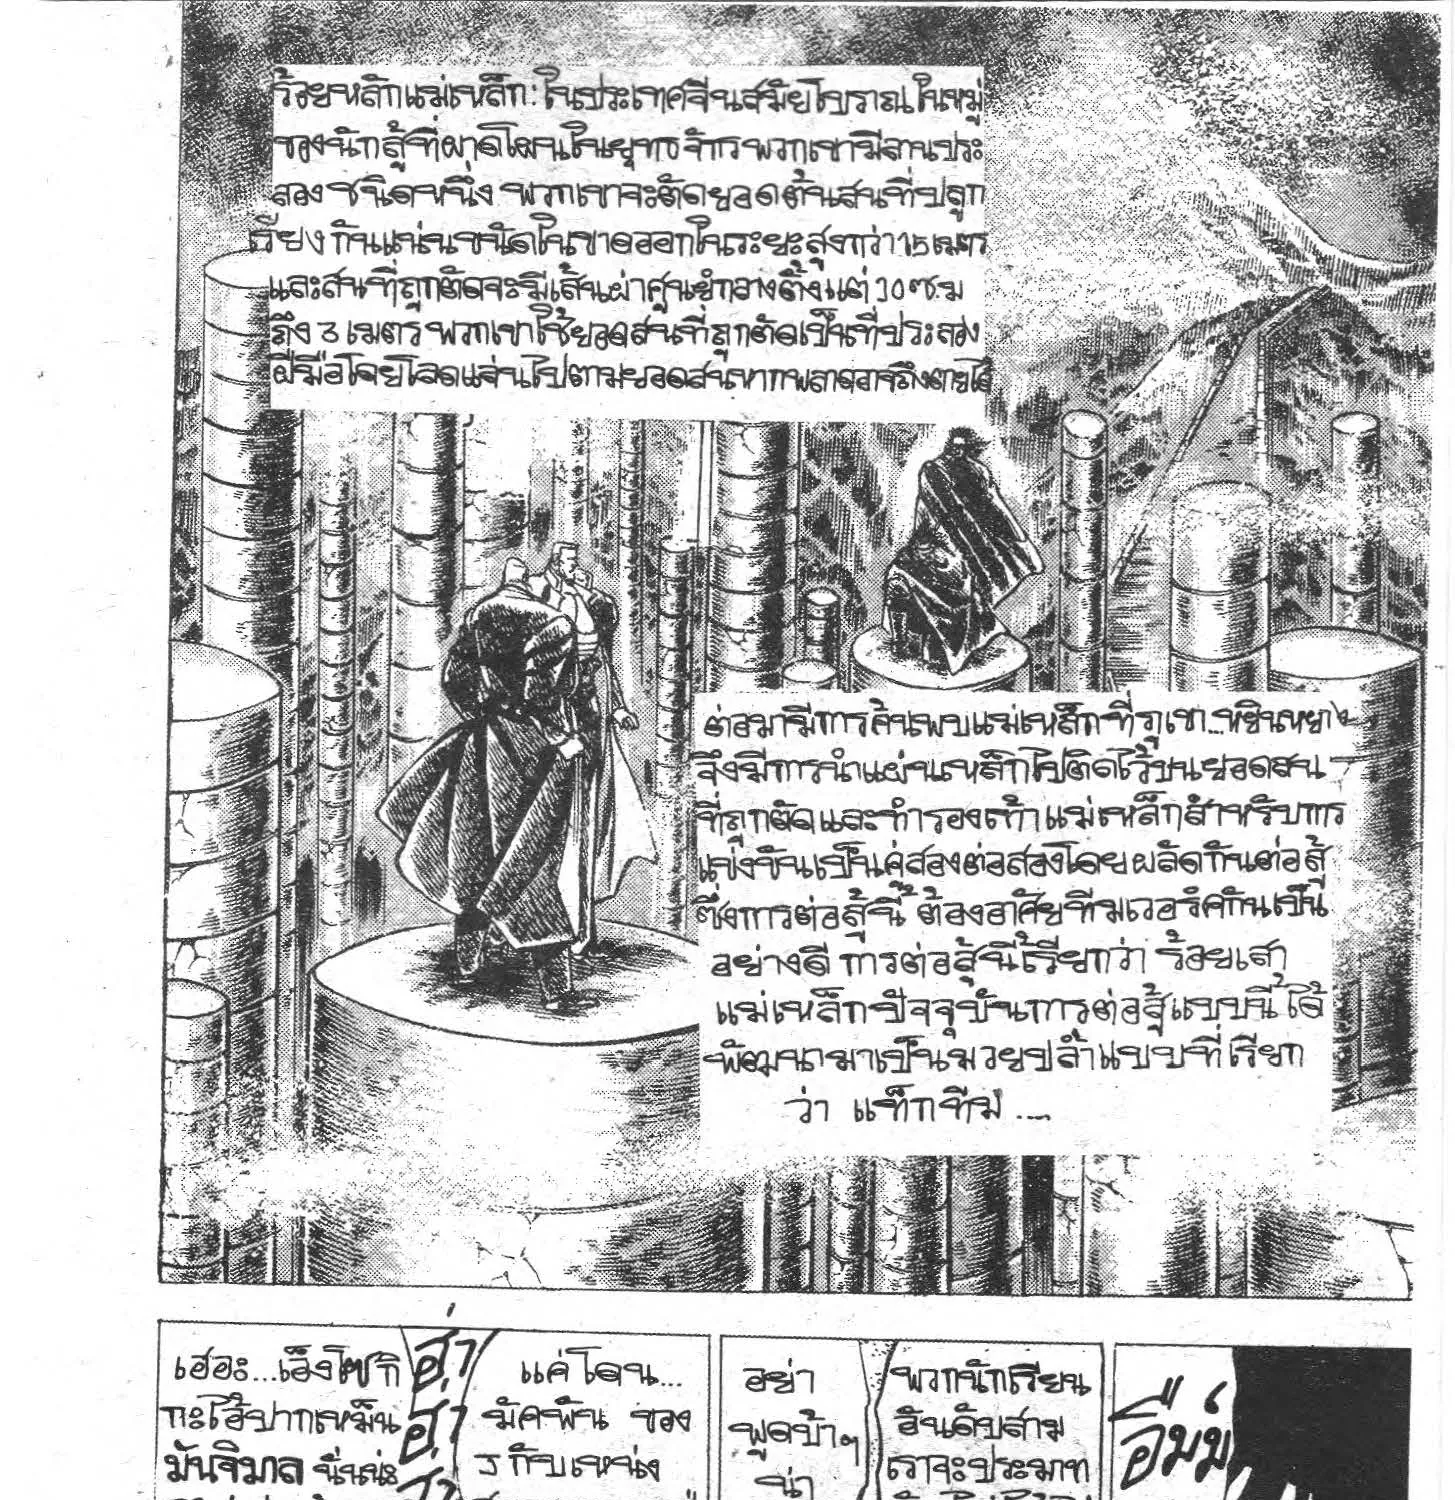 ร้อยหลักแม่เหล็ก: ในประเทศจีนสมัยโบราณในหมู่
ของนักสู้ที่ผาดโผนในยุทธจักรพวกเขามีลานประ
ลองชนิดหนึ่ง พวกเขาจะตัดยอดต้นสนที่ปลูก
เรียงกันแน่นขนัดในเขาออกในระยะสูงกว่า 15 เมตร
และสนที่ถูกตัดจะมีเส้นผ่าศูนย์กลางตั้งแต่ 30 ซ.ม
ถึง 3 เมตร พวกเขาใช้ยอดสนที่ถูกตัดเป็นที่ประลอง
ฝีมือโดยโลดแล่นไปตามยอดสนหากพลาดอาจถึงตายได้
ต่อมามีการค้นพบแม่เหล็กที่ภูเขา...หยินหยาง
จึงมีการนำแผ่นเหล็กไปติดไว้บนยอดสน
ที่ถูกตัดและทำรองเท้าแม่เหล็กสำหรับการ
แข่งขันเป็นคู่สองต่อสองโดยผลัดกันต่อสู้
ซึ่งการต่อสู้นี้ ต้องอาศัยทีมเวอร์คกันเป็น
อย่างดี การต่อสู้นี้เรียกว่า ร้อยเสา
แม่เหล็กปัจจุบันการต่อสู้แบบนี้ ได้
พัฒนามาเป็นมวยปล้ำแบบที่เรียก
ว่า แท็กทีม ....
เฮอะ...เอ็งโซกิ
กะไอ้ปากเหม็น
มันจิมาล นั่นน่ะ
ฮ่า
ฮ่า
แค่โดน...
มัดพัน ของ
อย่า
พูดบ้าๆ
น่า
พวกนักเรียน
อันดับสาม
เราจะประมาท
อืมม์